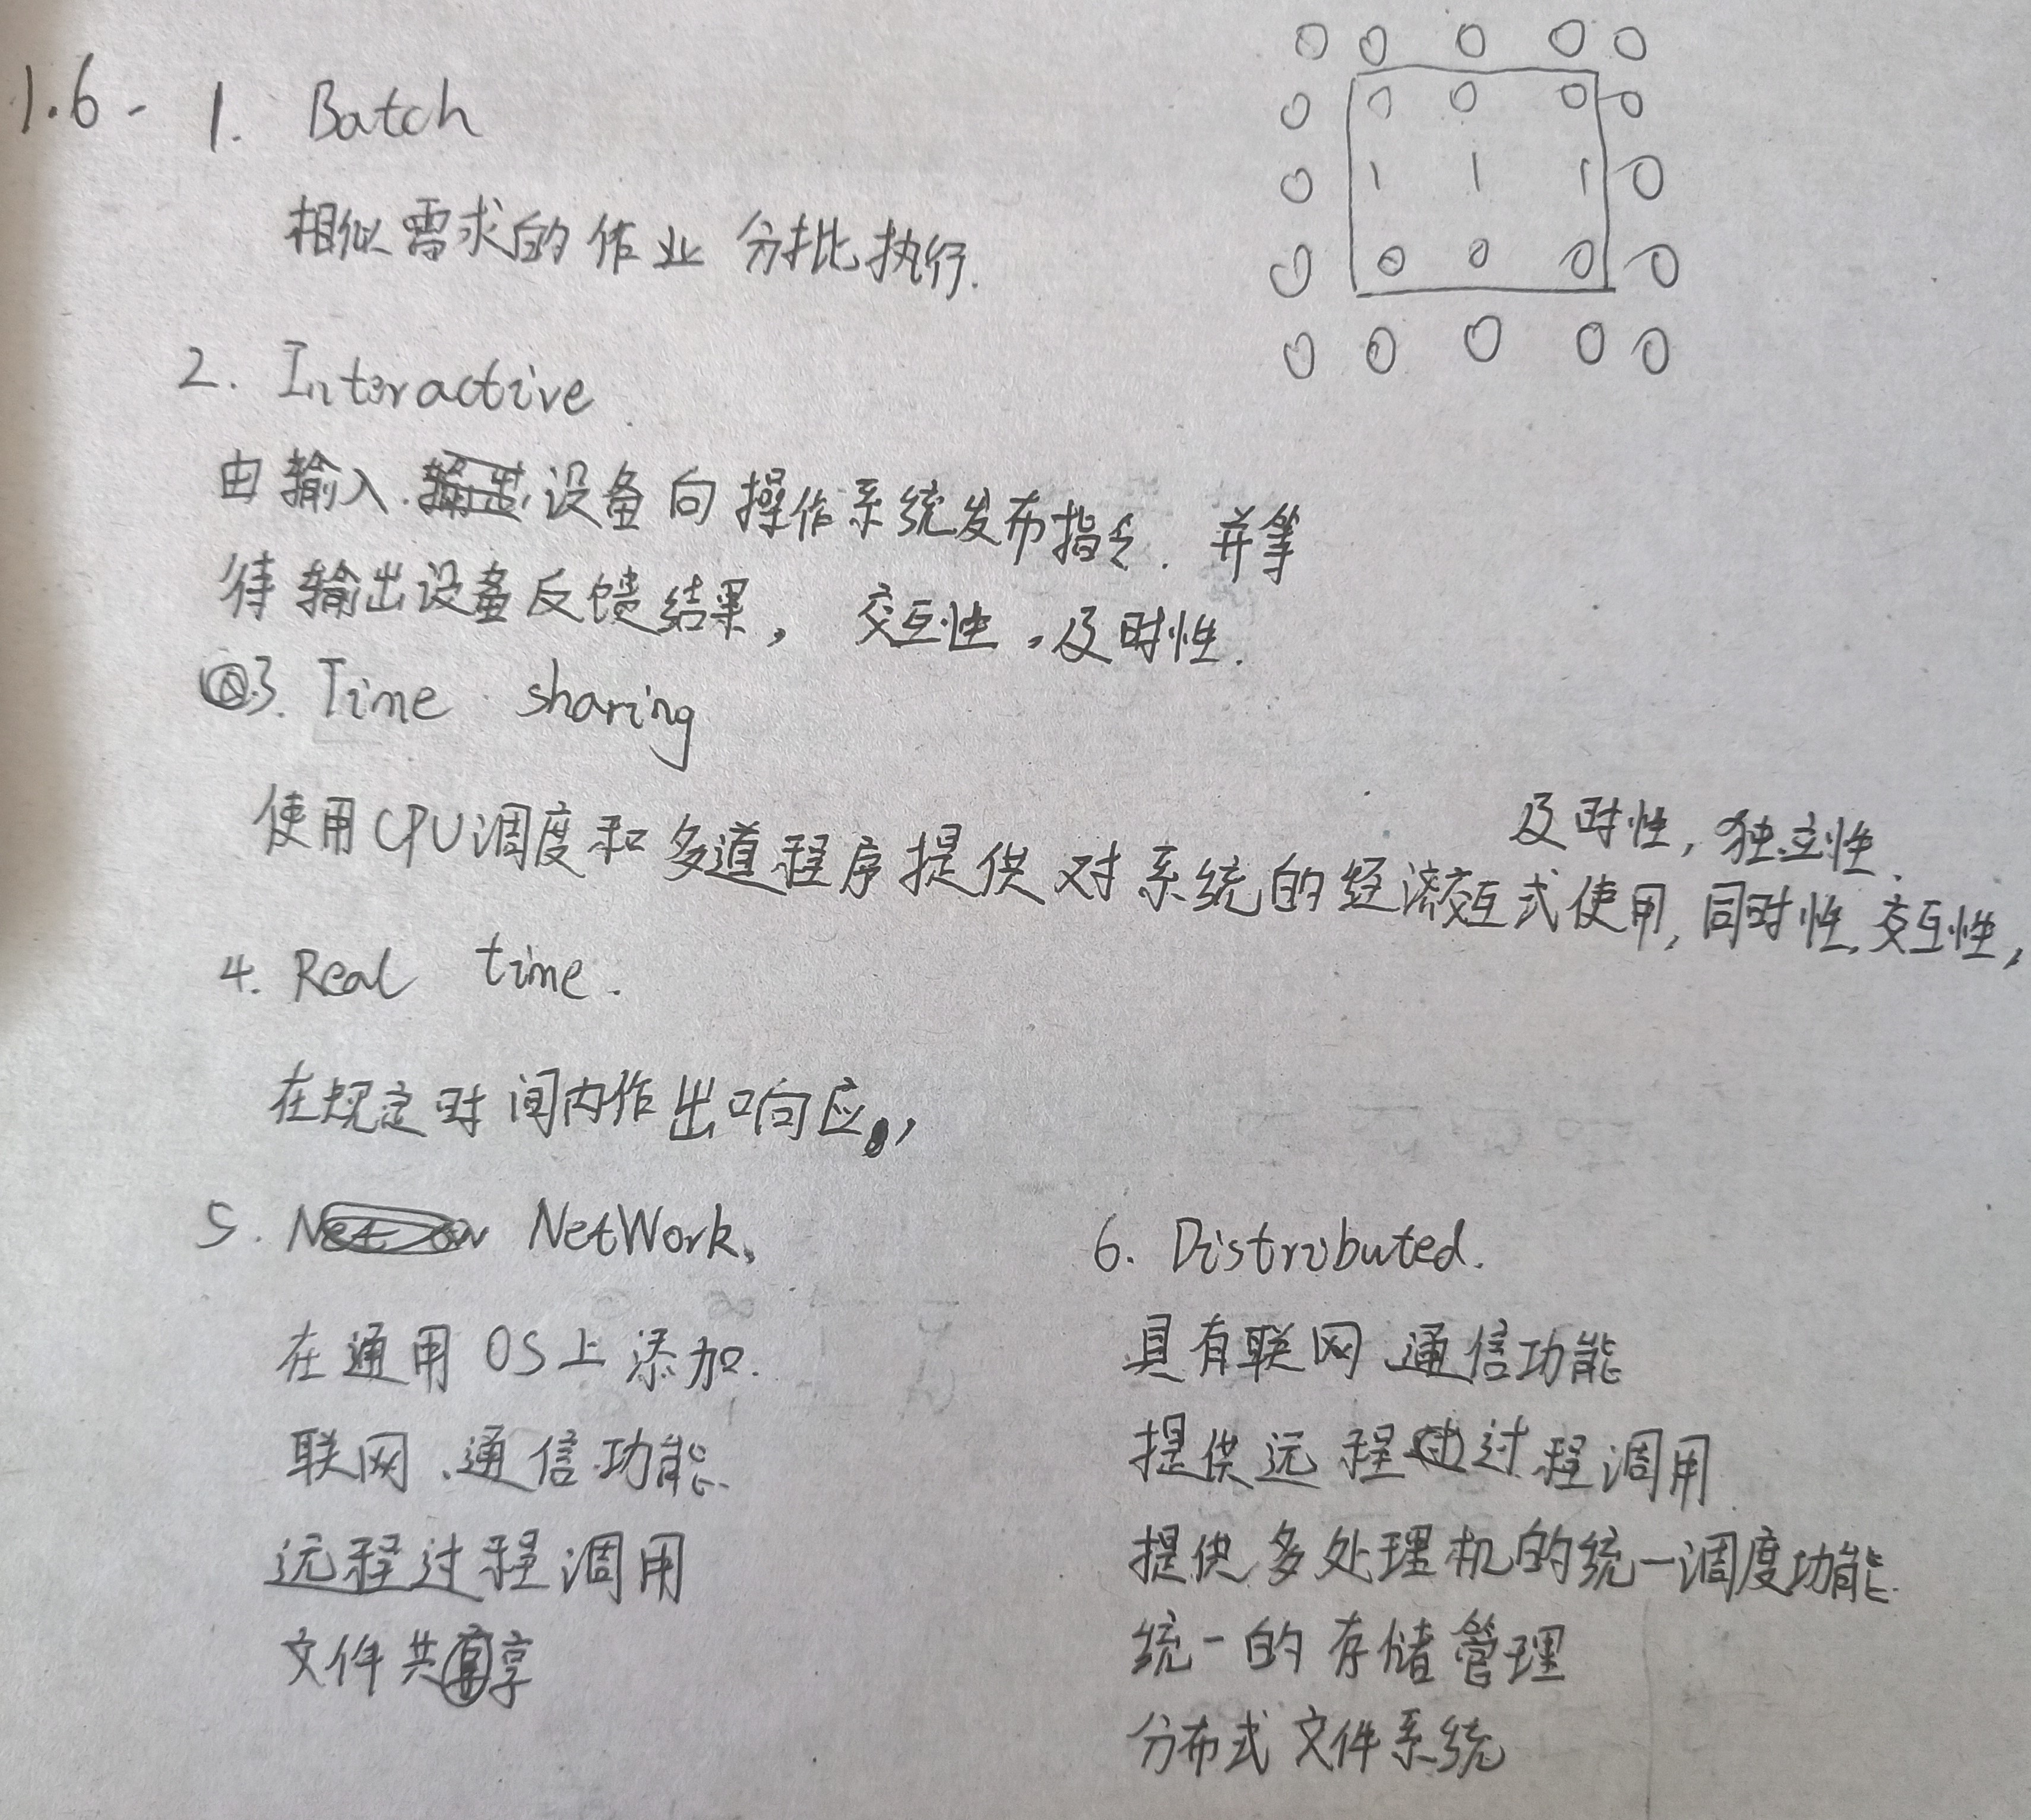 1.6- 1. Batch
相似需求的作业 分批执行.
0 0 0 0 0
0 0 0 0 0
0 1 1 1 0
0 0 0 0 0
0 0 0 0 0
2. Interactive
由输入.设备向操作系统发布指令. 并等
待输出设备反馈结果, 交互性,及时性.
3. Time sharing
使用CPU调度和多道程序提供对系统的经济交互式使用,同时性,交互性,
及时性,独立性.
4. Real time.
在规定时间内作出响应,
5. NetWork.
在通用OS上添加.
联网、通信功能.
远程过程调用
文件共享
6. Distributed.
具有联网、通信功能
提供远程过程调用
提供多处理机的统一调度功能.
统一的存储管理
分布式文件系统